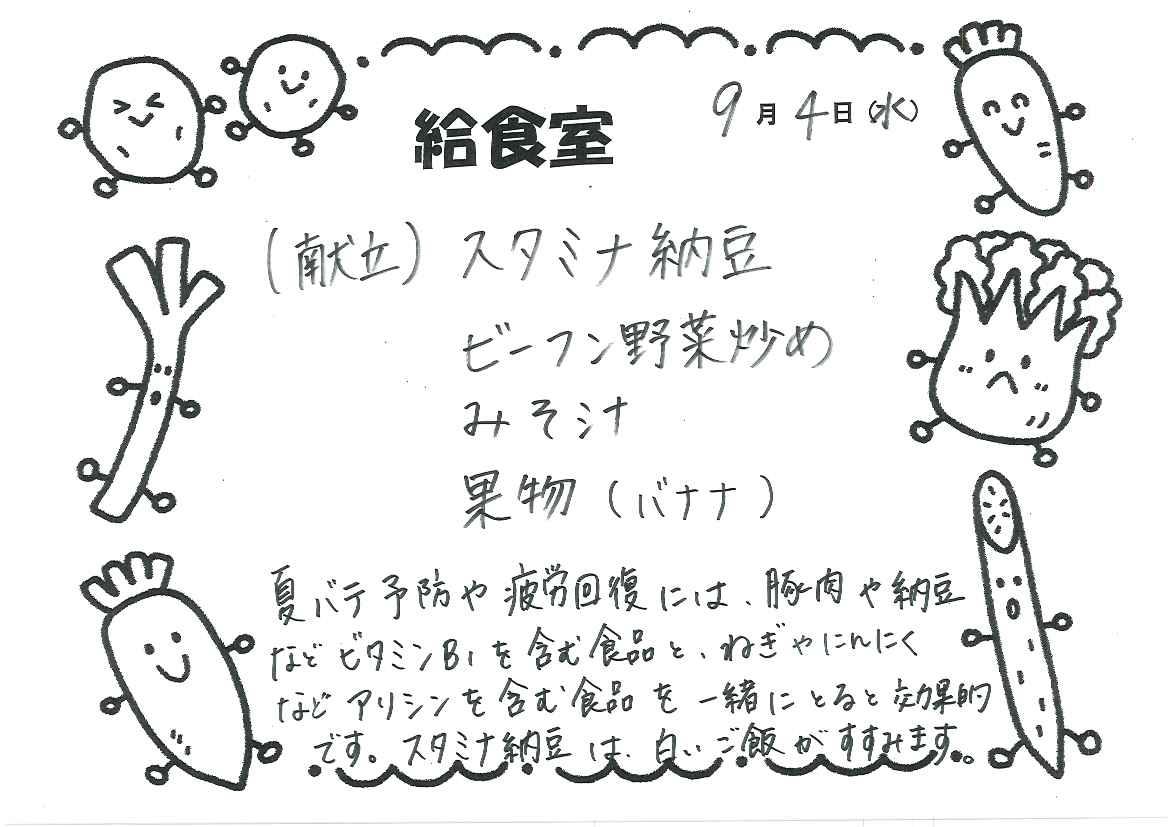 給食室
9月4日(水)
(献立)スタミナ納豆
ビーフン野菜炒め
みそ汁
果物(バナナ)
夏バテ予防や疲労回復には、豚肉や納豆
などビタミンB1を含む食品と、ねぎやにんにく
などアリシンを含む食品を一緒にとると効果的
です。スタミナ納豆は、白いご飯がすすみます。